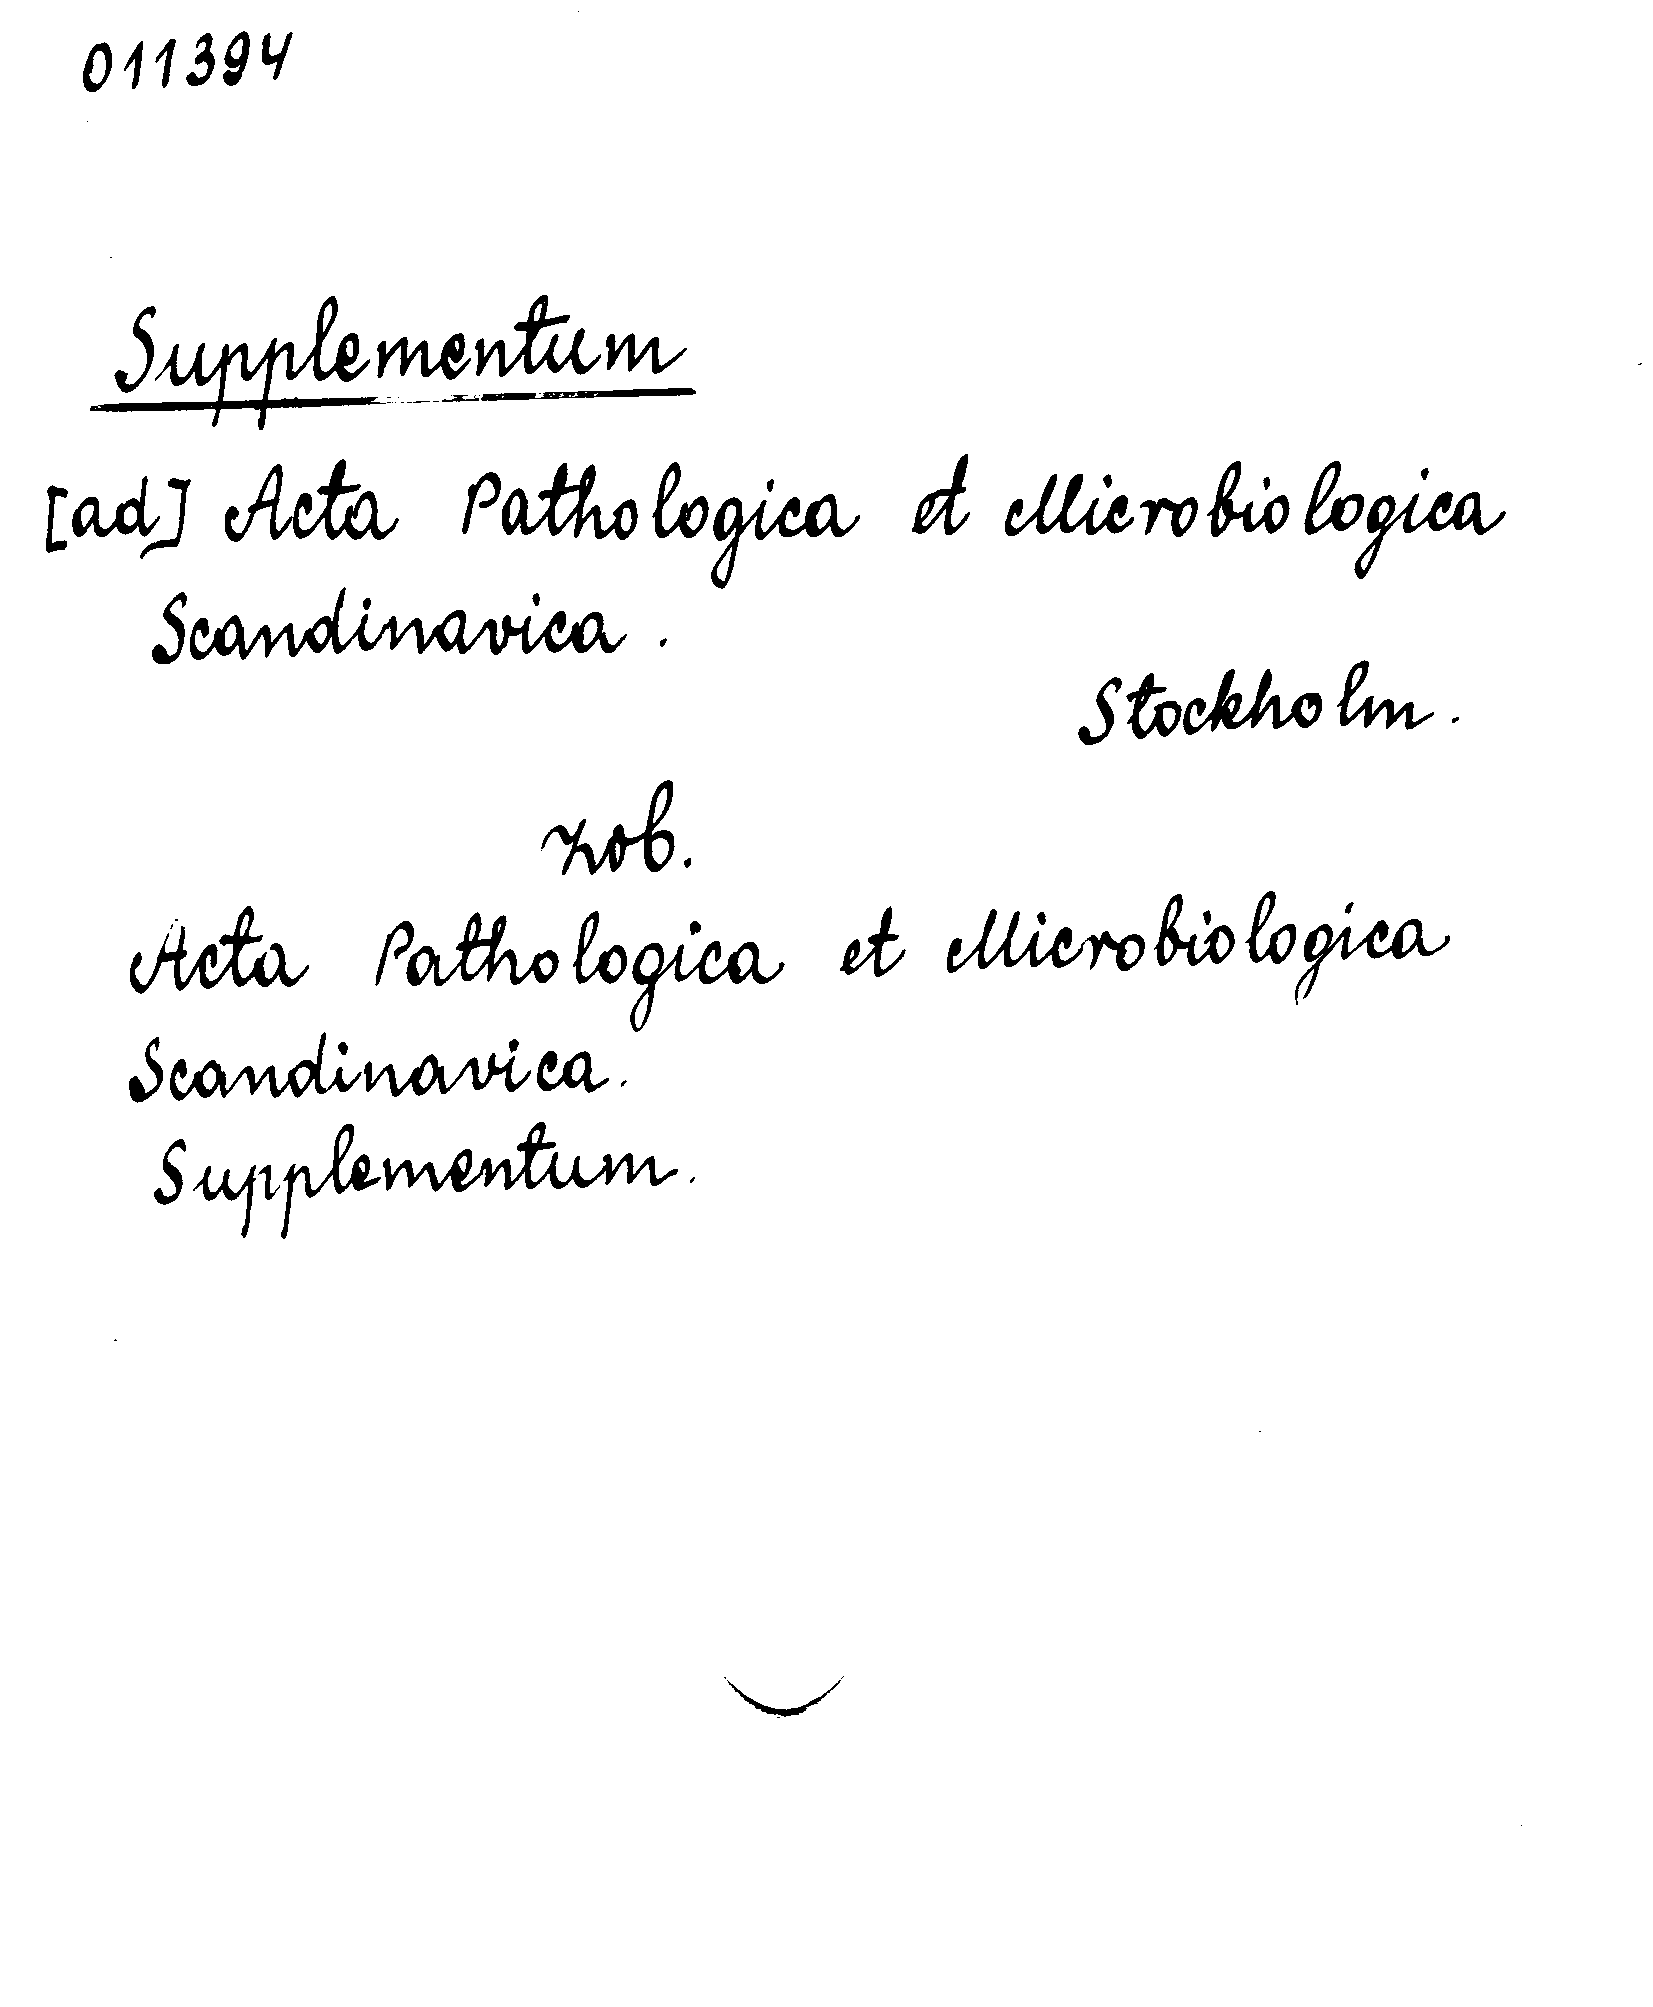 011394
Supplementum
[ad] Acta Pathologica et Microbiologica
Scandinavica.
Stockholm.
zob.
Acta Pathologica et Microbiologica
Scandinavica.
Supplementum.